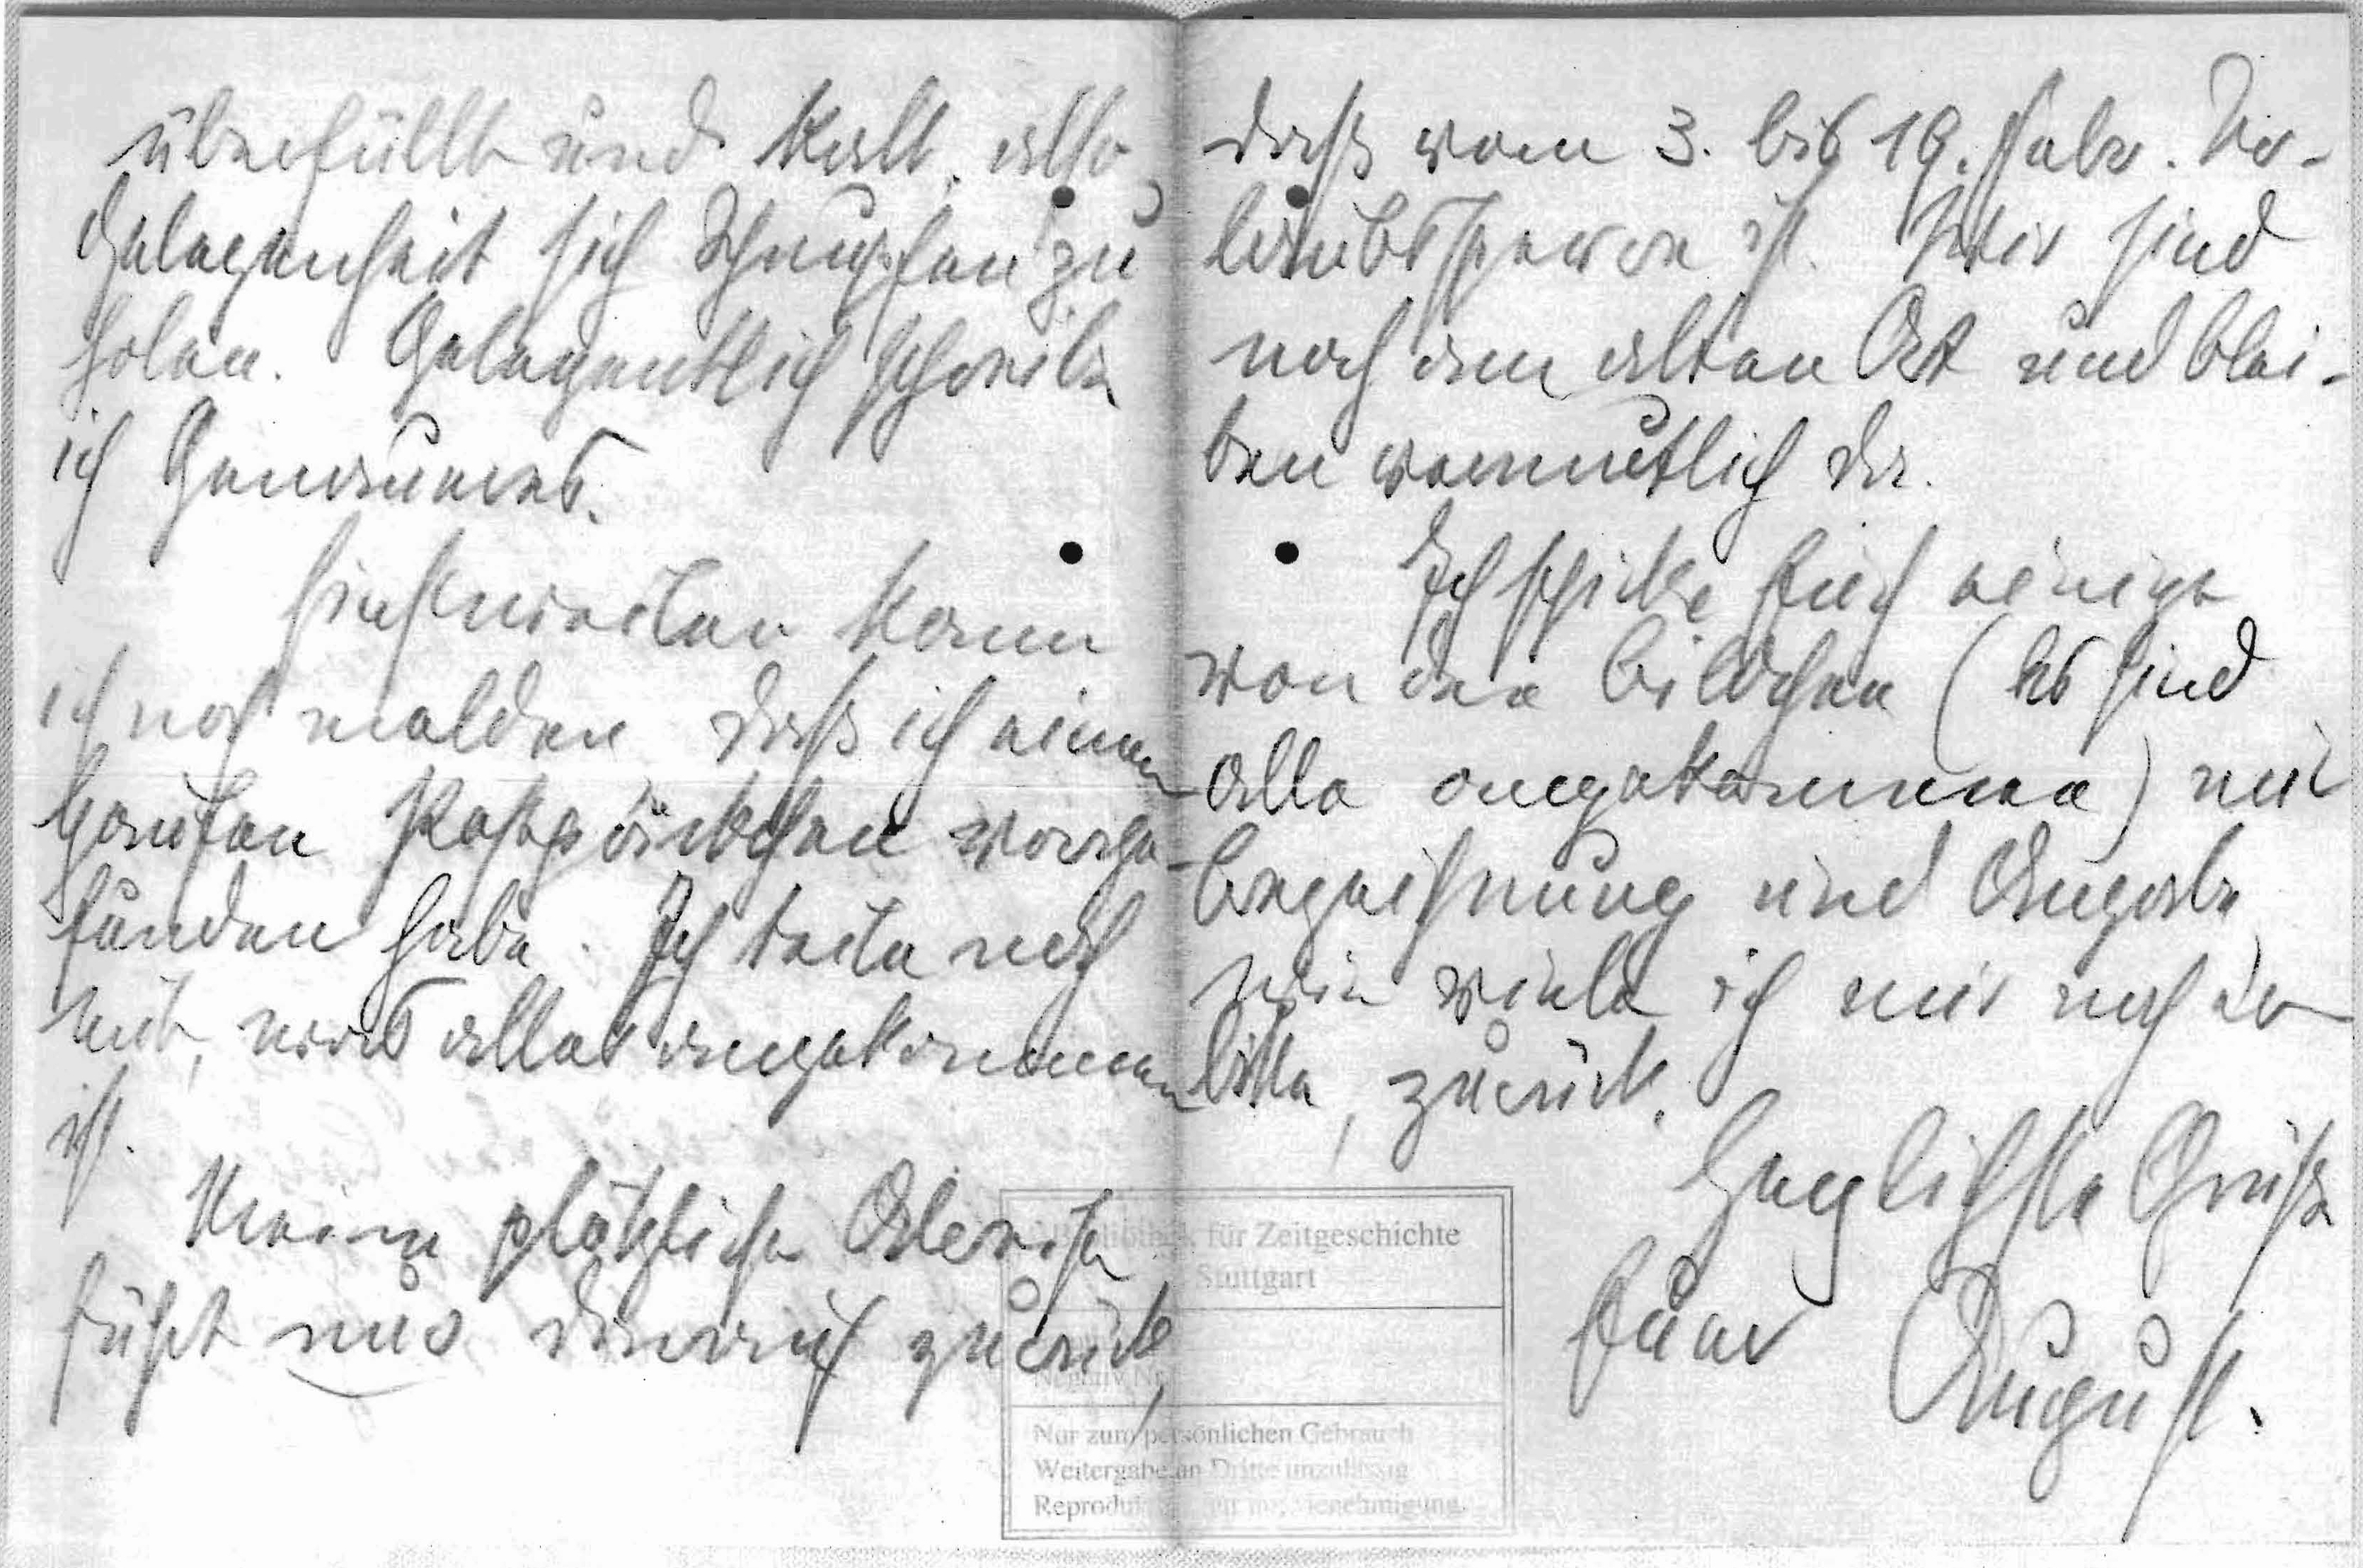 überfüllt und kalt, also
Gelegenheit sich Schnupfen zu
holen. Gelegentlich schreibe
ich Genaueres.
Einstweilen kann
ich noch melden daß ich einen
Haufen Postpäckchen vorge-
funden habe. Ich teile noch
mit, was alles angekommen
ist.
Meine plötzliche Abreise
führt nur darauf zurück,
daß vom 3. bis 19. Febr. Ur-
laubssperre ist. Wir sind
noch am alten Ort und blei-
ben vermutlich da.
Ich schicke Euch einige
von den Bildchen (es sind
alle angekommen) mit
Bezeichnung und Angabe
wie viele ich mir noch er-
bitte, zurück.
Herzlichste Grüße
Euer August.
Bibliothek für Zeitgeschichte
Stuttgart
Negativ Nr.
Nur zum persönlichen Gebrauch
Weitergabe an Dritte unzulässig
Reproduktion nur mit Genehmigung.